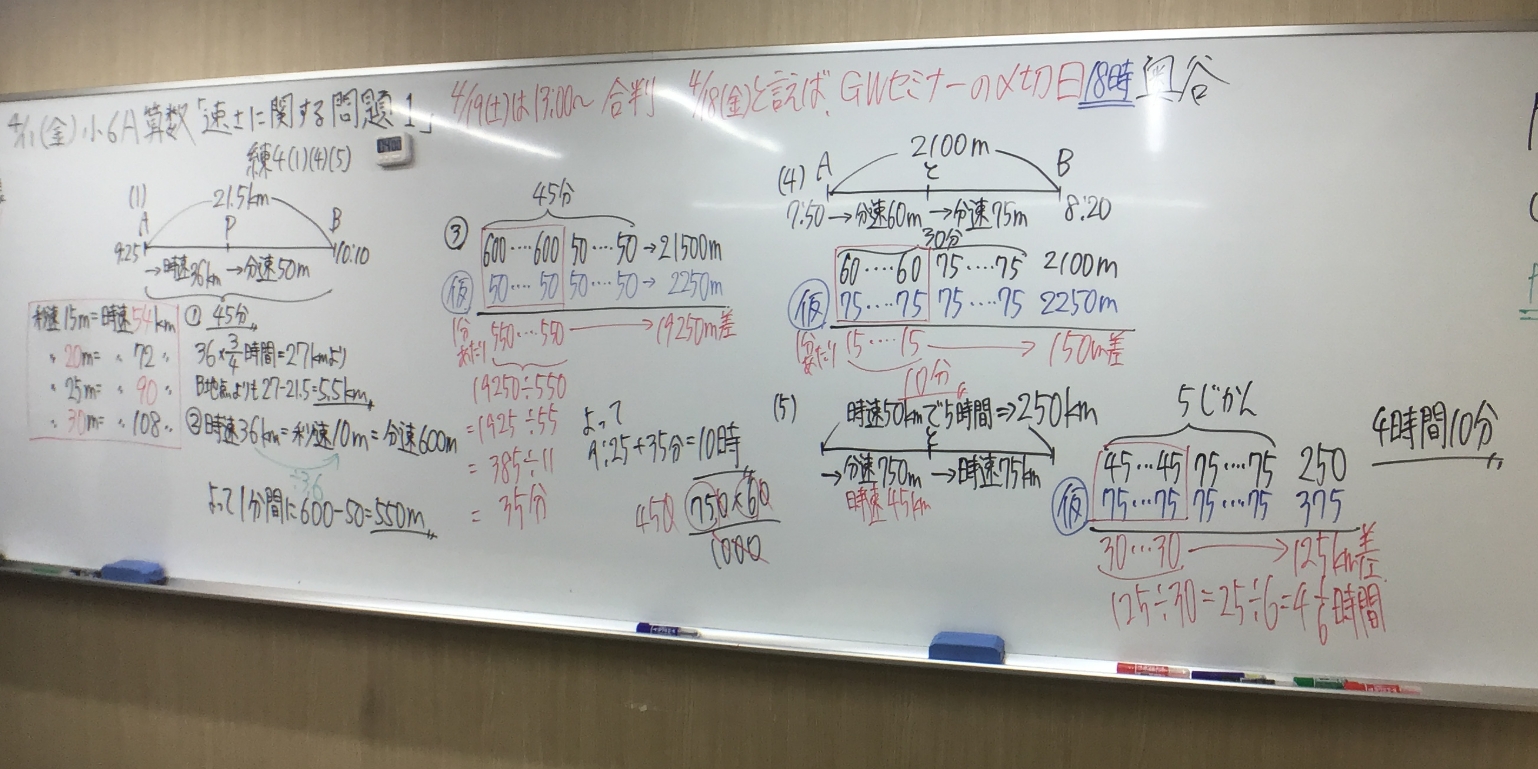 4/11(金)小6A算数「速士に関する問題1」
4/19(土)は13:00~ 合判 4/18(金)と言えば、GWセミナーの〆切日18時 奥谷
練4(1)(4)(5)
(1)
21.5km
A P B
9:25 10:10
→時速36km→分速50m
① 45分
秒速15m=時速54km
〃 20m=〃 72〃
〃 25m=〃 90〃
〃 30m=〃 108〃
36×3/4時間=27kmより
B地点よりも27-21.5=5.5km
②時速36km=秒速10m=分速600m
÷3.6
よって1分間に600-50=550m
③
45分
600‥‥600 50‥‥50→21500m
仮 50‥‥50 50‥‥50→2250m
1分あたり 550‥‥550→19250m差
19250÷550
=1925÷55
=385÷11
=35分
よって
9:25+35分=10時
450 750×60
1000
(4)
A 2100m B
と
7:50→分速60m→分速75m 8:20
30分
60‥‥60 75‥‥75 2100m
仮 75‥‥75 75‥‥75 2250m
1分あたり 15‥‥15→150m差
10分
(5)
時速50kmで5時間⇒250km
と
→分速750m→時速75km
時速45km
5じかん
45‥‥45 75‥‥75 250
仮 75‥‥75 75‥‥75 375
30‥‥30→125km差
125÷30=25÷6=4 1/6時間
4時間10分